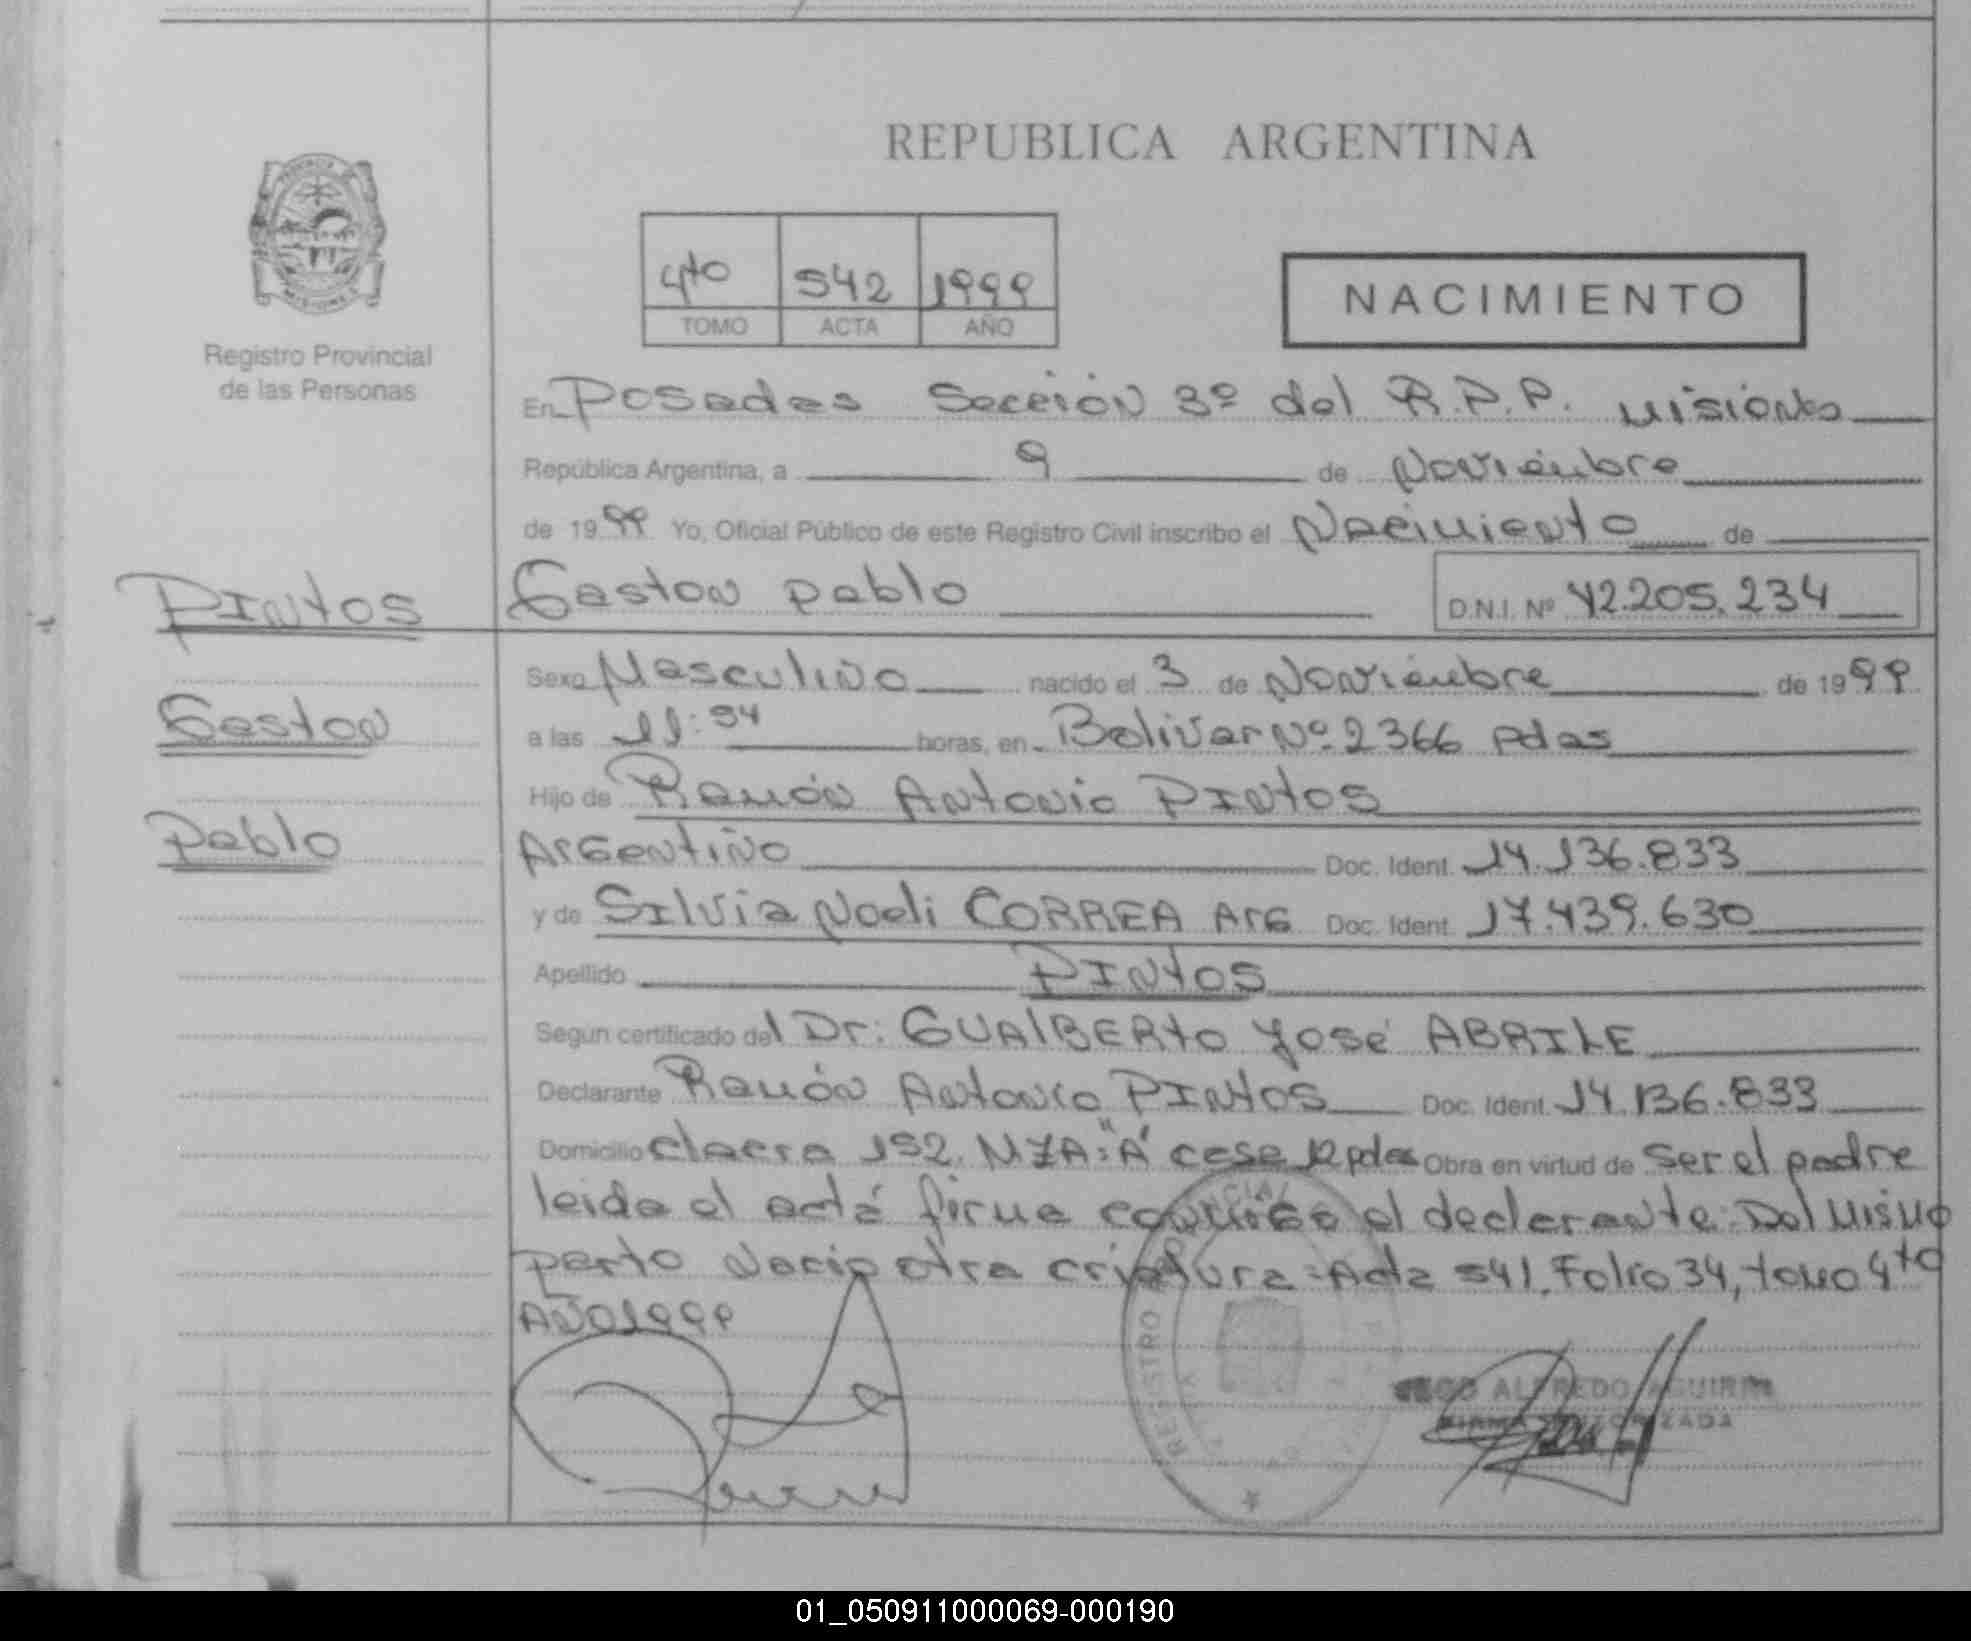 REPUBLICA ARGENTINA
4to 542 1999
TOMO ACTA AÑO
NACIMIENTO
PROVINCIA
MISIONES
Registro Provincial
de las Personas
En Posadas Sección 3º del R.P.P. Misiones
República Argentina, a 9 de Noviembre
de 1999 Yo, Oficial Público de este Registro Civil inscribo el Nacimiento de
PINtos Gaston Pablo D.N.I. Nº 42.205.234
Sexo Masculino nacido el 3 de Noviembre de 1999
Gaston
a las 11:54 horas, en Bolivar Nº 2366 Pdas
Hijo de Ramón Antonio PINtos
Pablo
Argentino Doc. Ident. 14.136.833
y de Silvia Noeli CORREA Arg Doc. Ident. 17.439.630
Apellido PINtos
Según certificado del Dr: GUAlBERto José ABRILE
Declarante Ramón Antonio PINtos Doc. Ident. 14.136.833
Domicilio chacra 152. MZA: "A" casa 12 pdas Obra en virtud de ser el padre
leida el acta firma conmigo el declarante: Del mismo
parto nacio otra criatura: Acta 541, Folio 34, tomo 4to
AÑO 1999
REGISTRO PROVINCIAL
ALFREDO AGUIRRE
FIRMA AUTORIZADA
01_050911000069-000190